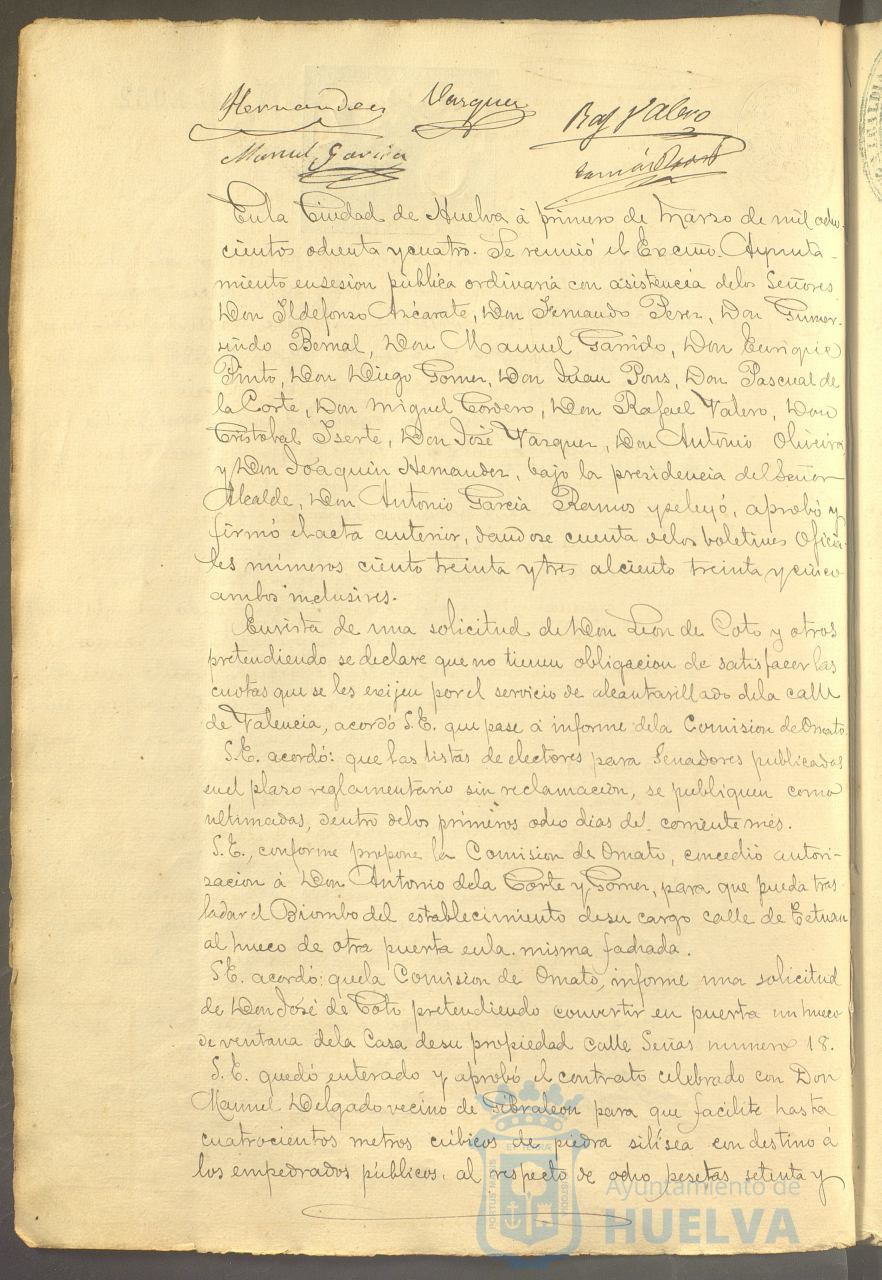 Hernandez Vazquez Raf Valero
Manuel Garcia
En la Ciudad de Huelva á primero de Marzo de mil ocho-
cientos ochenta y cuatro. Se reunió el Excmo. Ayunta-
miento en sesion pública ordinaria con asistencia de los Señores
Don Ildefonso Azcarate, Don Fernando Perez, Don Gumer-
sindo Bernal, Don Manuel Garrido, Don Enrique
Pinto, Don Diego Gomez, Don Juan Pons, Don Pascual de
la Corte, Don Miguel Cordero, Don Rafael Valero, Don
Cristobal Iserte, Don José Vazquez, Don Antonio Oliveira
y Don Joaquin Hernandez, bajo la presidencia del Señor
Alcalde, Don Antonio Garcia Ramos y se leyó, aprobó y
firmó el acta anterior, dandose cuenta de los boletines Oficia-
les números ciento treinta y tres al ciento treinta y cinco
ambos inclusives.
En vista de una solicitud de Don Leon de Coto y otros
pretendiendo se declare que no tienen obligacion de satisfacer las
cuotas que se les exijen por el servicio de alcantarillado de la calle
de Valencia, acordó S.E. que pase á informe de la Comision de Ornato.
S.E. acordó: que las listas de electores para Senadores publicadas
en el plazo reglamentario sin reclamacion, se publiquen como
ultimadas, dentro de los primeros ocho dias del corriente més.
S.E., conforme propone la Comision de Ornato, concedió autori-
zacion á Don Antonio de la Corte y Gomez, para que pueda tras-
ladar el Biombo del establecimiento de su cargo calle de Tetuan
al hueco de otra puerta en la misma fachada.
S.E. acordó: que la Comision de Ornato, informe una solicitud
de Don José de Coto pretendiendo convertir en puerta un hueco
de ventana de la Casa de su propiedad calle Señas numero 18.
S.E. quedó enterado y aprobó el contrato celebrado con Don
Manuel Delgado vecino de Gibraleon para que facilite hasta
cuatrocientos metros cúbicos de piedra silísea con destino á
los empedrados públicos, al respecto de ocho pesetas setenta y
Ayuntamiento de
HUELVA